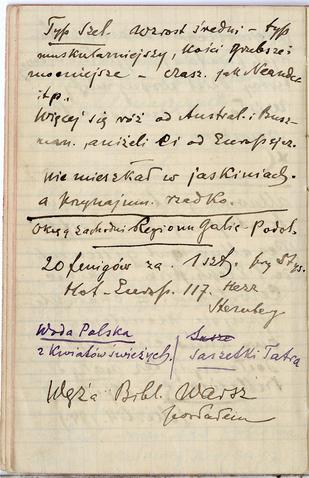 Typ Szel. wzrost średni – typ
muskularniejszy, kości grubsze i
mocniejsze – czasz. jak Neander
itp.
Więcej się róż od Austral. i Busz-
man. aniżeli ci od Europejcz.
nie mieszkał w jaskiniach.
a przynajmn. rzadko.
Okrąg zachodni Regionu Galic-Podol.
20 fenigów za 1 szt.
Hot-Europ. 117. Herr
Sternberg
Woda Polska
z kwiatów świeżych.
Susze
Saszetki Tatra
Węża Bibl. Warsz